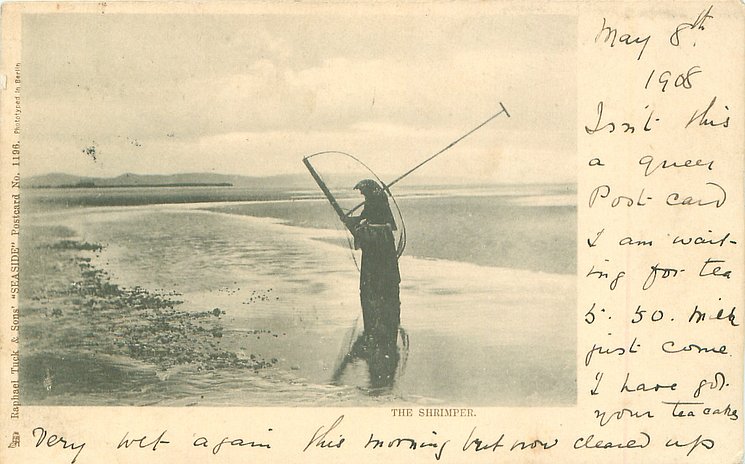 May 8th.
1908
Isn't this
a queer
Post card
I am wait-
ing for tea
5. 50. milk
just come.
I have got
your tea cakes
Very wet again this morning but now cleared up
THE SHRIMPER.
Raphael Tuck & Sons' "SEASIDE" Postcard No. 1196. Phototyped in Berlin